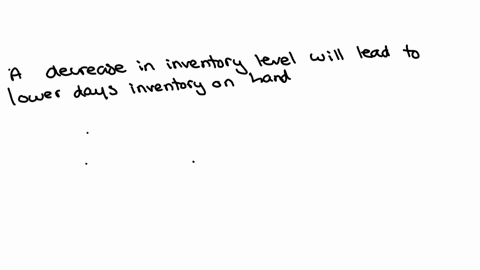 A decrease in inventory level will lead to
lower days inventory on hand